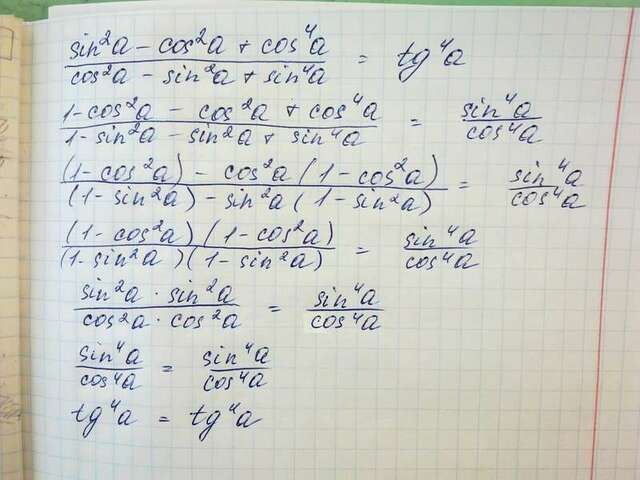 sin²a - cos²a + cos⁴a / cos²a - sin²a + sin⁴a = tg⁴a
1-cos²a - cos²a + cos⁴a / 1-sin²a - sin²a + sin⁴a = sin⁴a / cos⁴a
(1-cos²a) - cos²a (1-cos²a) / (1-sin²a) - sin²a (1-sin²a) = sin⁴a / cos⁴a
(1-cos²a)(1-cos²a) / (1-sin²a)(1-sin²a) = sin⁴a / cos⁴a
sin²a · sin²a / cos²a · cos²a = sin⁴a / cos⁴a
sin⁴a / cos⁴a = sin⁴a / cos⁴a
tg⁴a = tg⁴a